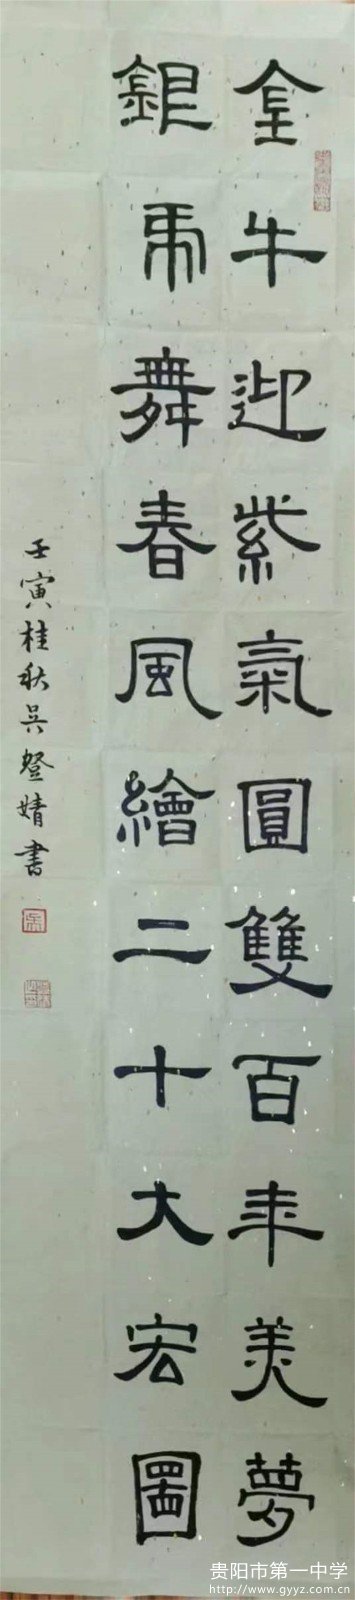 金牛迎紫氣圓雙百年美夢
銀虎舞春風繪二十大宏圖
壬寅桂秋吳登婧書
贵阳市第一中学
http://www.gyyz.com.cn